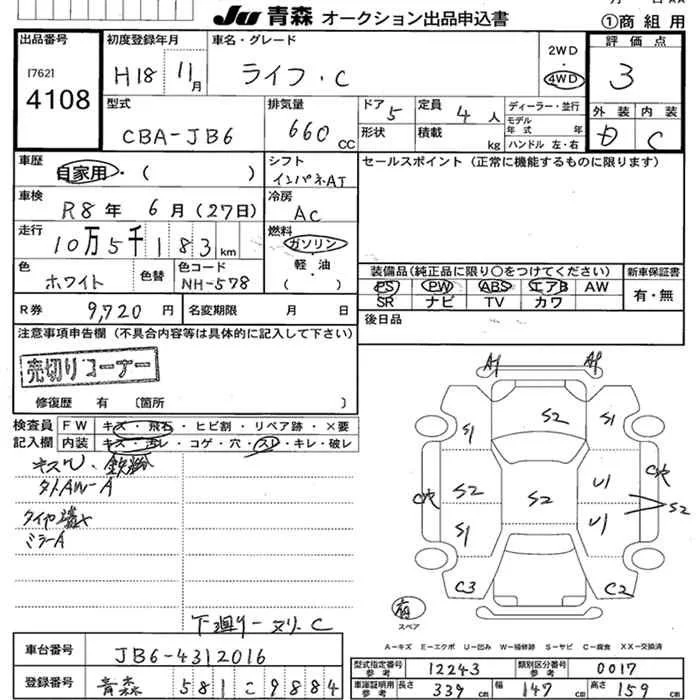 JU 青森 オークション出品申込書
①商 組 用
出品番号
[762]
4108
初度登録年月
H18 11月
車名・グレード
ライフ・C
2WD
4WD
評価点
3
外装 内装
D C
型式
CBA-JB6
排気量
660 CC
ドア 5
定員 4 人
形状
積載 kg
ディーラー・並行
モデル年式 年式
ハンドル 左・右
車歴
自家用・( )
シフト
インパネAT
セールスポイント(正常に機能するものに限ります)
車検
R8年 6月(27日)
冷房
AC
走行
10万5千183km
燃料
ガソリン
軽・油
( )
色
ホワイト
色替
色コード
NH-578
装備品(純正品に限り○をつけてください)
PS PW ABS エアB AW
SR ナビ TV カワ
新車保証書
有・無
R券 9,720円
名変期限 月 日
後日品
注意事項申告欄(不具合内容等は具体的に記入して下さい)
売切りコーナー
修復歴 有 〔箇所 〕
検査員記入欄
FW キズ・飛石・ヒビ割・リペア跡・×要
内装 キズ・汚レ・コゲ・穴・スレ・キレ・破レ
ミラーA
下廻りーヌリ.C
A1 A1
S1 S2 S1
S2 S2 U1
S1 U1 S2
C穴 C穴
C3 C2
スペア
A-キズ E-エクボ U-凹み W-補修跡 S-サビ C-腐食 XX-交換済
車台番号
JB6-4312016
登録番号
青森 581 こ 9884
型式指定番号 参考 12243
類別区分番号 参考 0017
車庫証明用 参考 長さ 339cm 幅 147cm 高さ 159cm